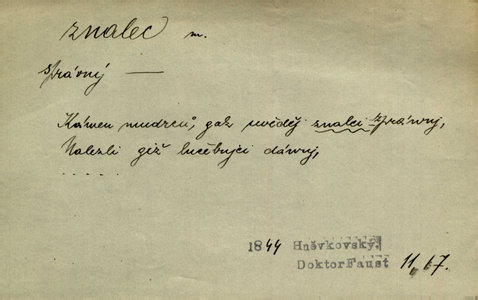 znalec m.
správný —
Kámen mudrců, gak uvěděj znalci zpráwnj,
Nalezli giž lučebnjci dáwnj,
. . . . .
1844 Hněvkovský,
DoktorFaust 11, 67.